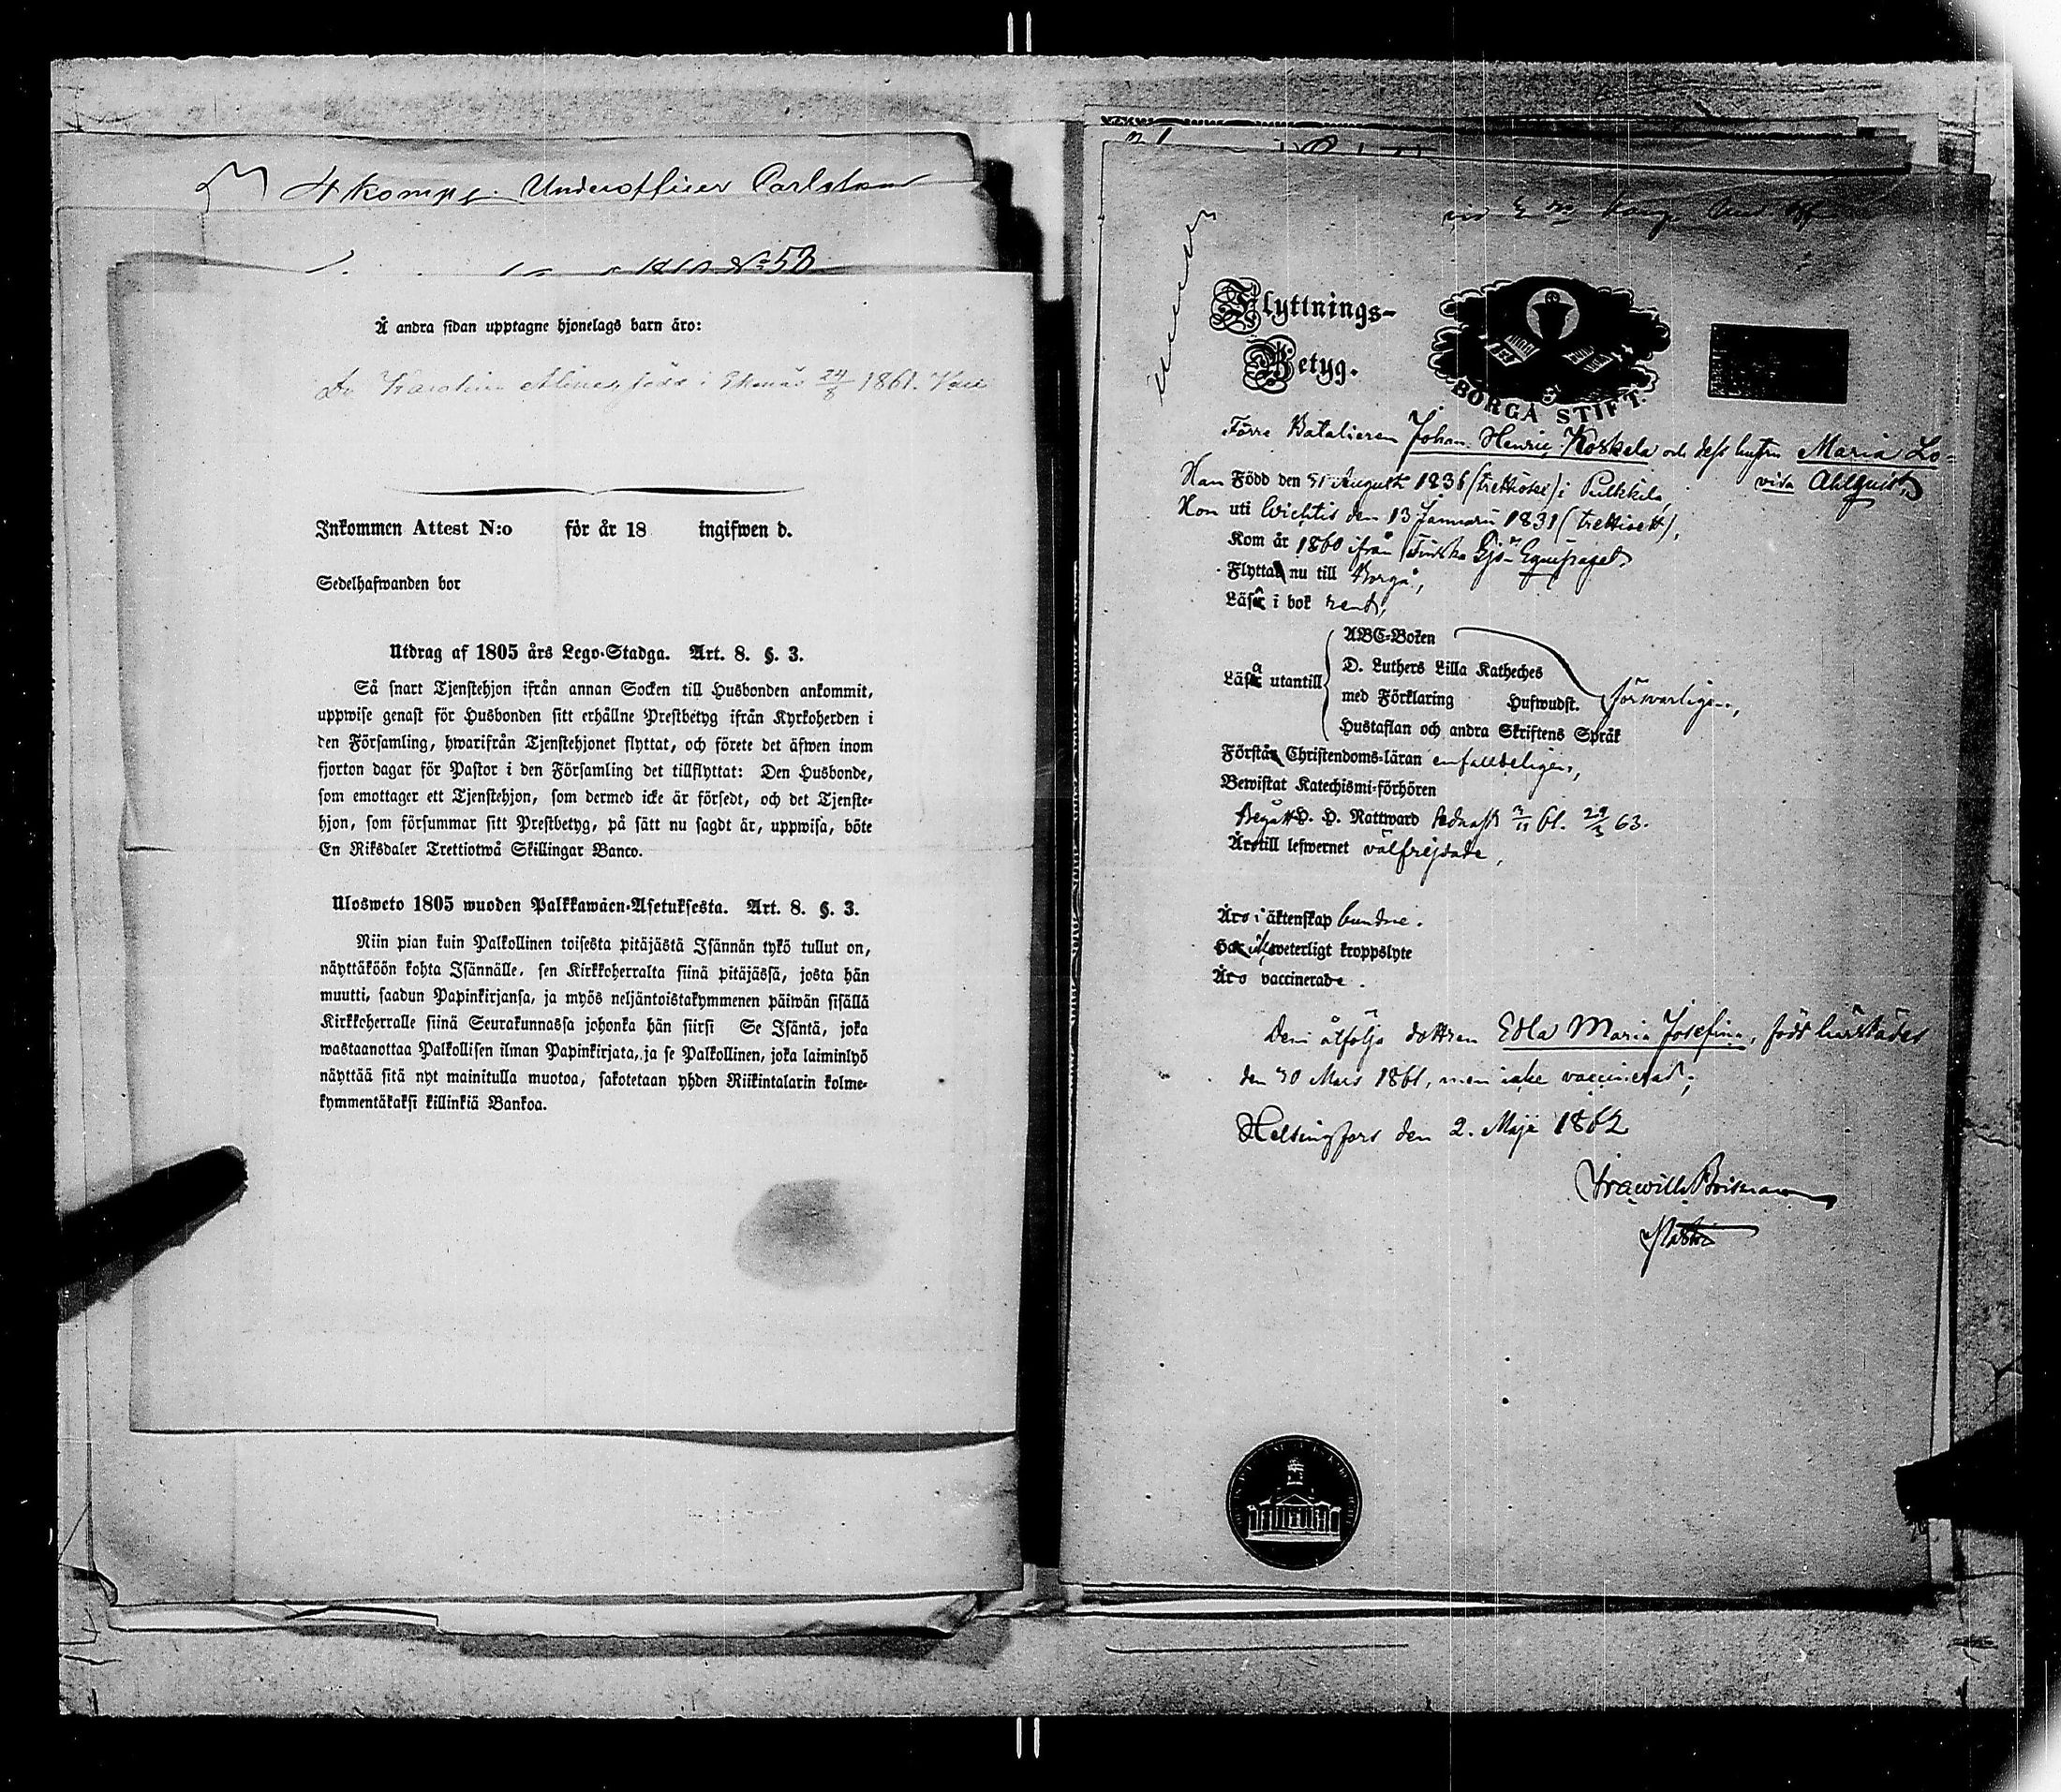 4 komp. Underofficer Carlstr
No 53
Å andra sidan upptagne hjonelags barn äro:
Dr Karolina Alina, född i Ekenäs 24/8 1861. Vacc
Inkommen Attest N:o för år 18 ingifwen d.
Sedelhafwanden bor
Utdrag af 1805 års Lego-Stadga. Art. 8. §. 3.
Så snart Tjenstehjon ifrån annan Socken till Husbonden ankommit,
uppwise genast för Husbonden sitt erhållne Prestbetyg ifrån Kyrkoherden i
den Församling, hwarifrån Tjenstehjonet flyttat, och förete det äfwen inom
fjorton dagar för Pastor i den Församling det tillflyttat: Den Husbonde,
som emottager ett Tjenstehjon, som dermed icke är försedt, och det Tjenste-
hjon, som försummar sitt Prestbetyg, på sätt nu sagdt är, uppwisa, böte
En Riksdaler Trettiotwå Skillingar Banco.
Ulosweto 1805 wuoden Palkkawäen-Asetuksesta. Art. 8. §. 3.
Niin pian kuin Palkollinen toisesta pitäjästä Isännän tykö tullut on,
näyttäköön kohta Isännälle, sen Kirkkoherralta siinä pitäjässä, josta hän
muutti, saadun Papinkirjansa, ja myös neljäntoistakymmenen päiwän sisällä
Kirkkoherralle siinä Seurakunnassa johonka hän siirsi Se Isäntä, joka
wastaanottaa Palkollisen ilman Papinkirjata, ja se Palkollinen, joka laiminlyö
näyttää sitä nyt mainitulla muotoa, sakotetaan yhden Riikintalarin kolme-
kymmentäkaksi killinkiä Bankoa.
Flyttnings-
Betyg.
BORGÅ STIFT.
Förre Batalieren Johan Henric Koskela och dess hustru Maria Lo-
visa Ahlquist,
Han Född den 31 Augusti 1836 (trettiosex) i Pulkkila,
Hon uti Wichtis den 13 Januarii 1831 (trettioett),
Kom år 1860 ifrån Finska Sjö-Equipaget
Flytta nu till Borgå,
Läsa i bok rent,
ABC-Boken
D. Luthers Lilla Katheches
Läsa utantill med Förklaring Hufwudst. försvarligen,
Hustaflan och andra Skriftens Språk
Förstå Christendoms-läran enfaldeligen,
Bewistat Katechismi-förhören
Begått H. H. Nattward sednast 3/11 61. 29/3 63.
Äro till lefwernet välfrejdade,
Äro i äktenskap bundne.
weterligt kroppslyte
Äro vaccinerade.
Dem åtfölja dottren Edla Maria Josefina, född härstädes
den 30 Mars 1861, men icke vaccinerad;
Helsingfors den 2. Maji 1862